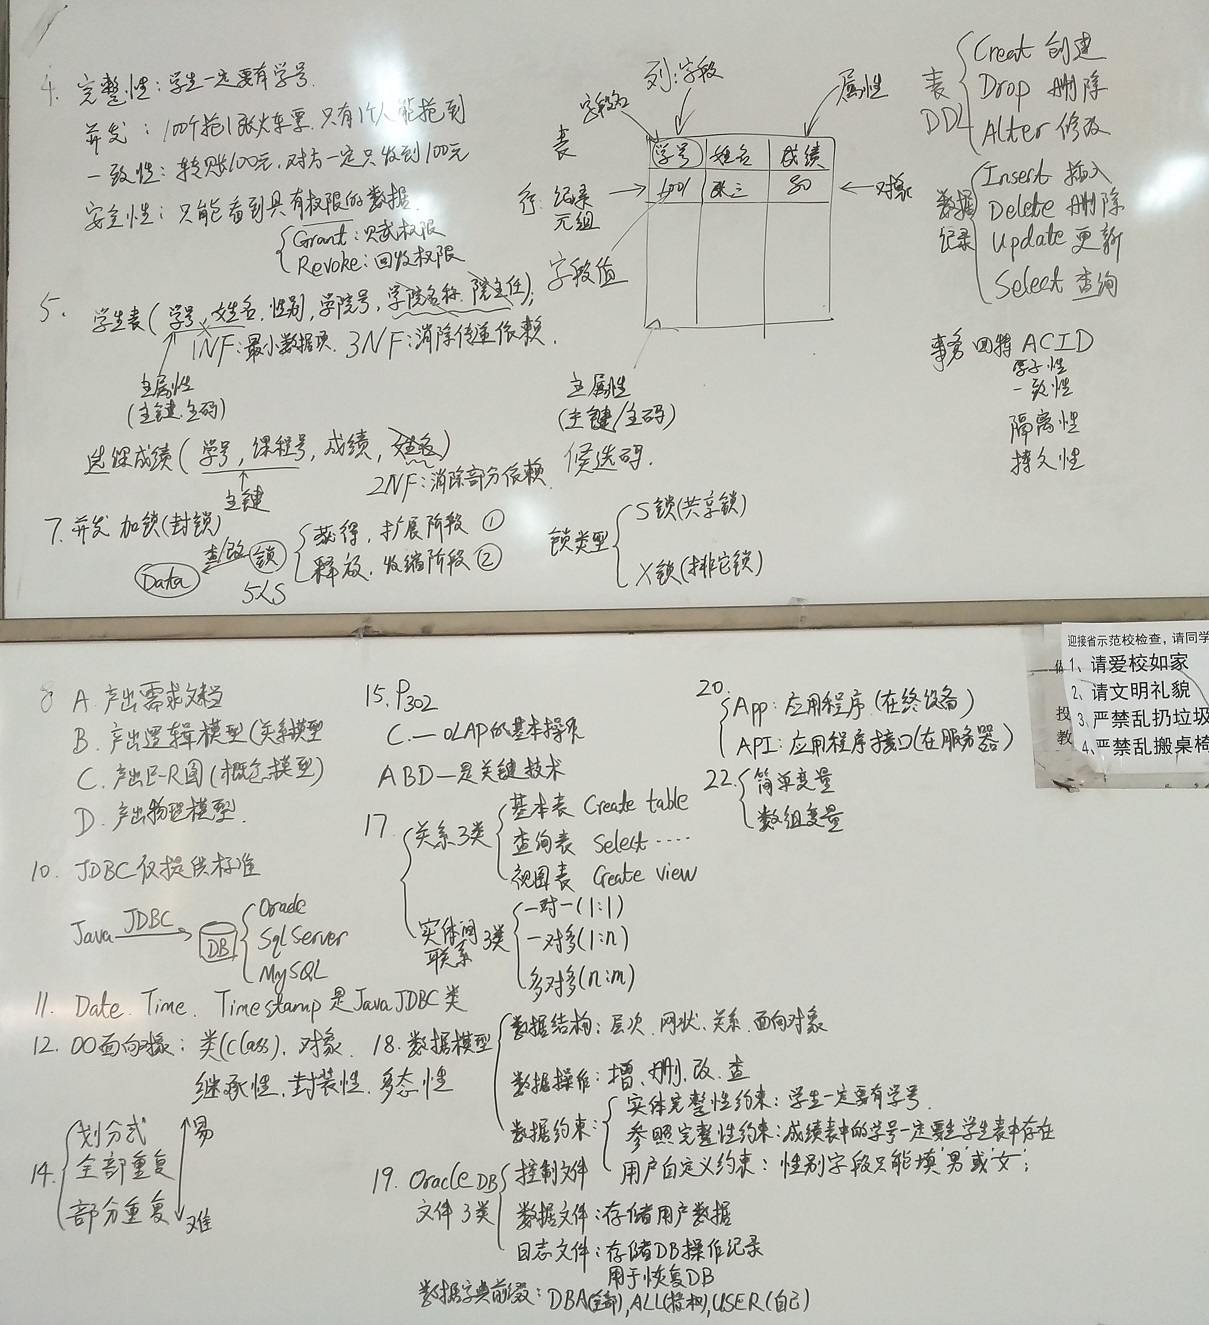 4. 完整性：学生一定要有学号.
并发：100个抢1张火车票.只有1个人能抢到
一致性：转账100元,对方一定只收到100元
安全性：只能看到具有权限的数据.
Grant：赋权限
Revoke：回收权限
5. 学生表(学号,姓名,性别,学院号,学院名称,院主任);
1NF：最小数据项. 3NF：消除传递依赖.
主属性
(主键.主码)
选课成绩(学号,课程号,成绩,姓名)
主键
2NF：消除部分依赖.
7. 并发 加锁(封锁)
Data 查/改 锁
获得,扩展阶段 ①
释放,收缩阶段 ②
锁类型
S锁(共享锁)
X锁(排它锁)
列：字段
字段名
属性
表
学号 姓名 成绩
1001 张三 80
行：纪录
元组
对象
字段值
主属性
(主键/主码)
候选码.
表
DDL
Creat 创建
Drop 删除
Alter 修改
数据
纪录
Insert 插入
Delete 删除
Update 更新
Select 查询
事务 四特 ACID
原子性
一致性
隔离性
持久性
8 A. 产出需求文档
B. 产出逻辑模型(关系模型
C. 产出E-R图(概念模型)
D. 产出物理模型.
10. JDBC仅提供标准
Java JDBC DB
Oracle
SqlServer
MySQL
11. Date. Time. Timestamp是Java JDBC类
12. OO面向对象：类(class). 对象.
继承性.封装性.多态性
14.
划分式
全部重复
部分重复
易
难
15. P302
C.—OLAP的基本操作
ABD—是关键技术
17.
关系3类
基本表 Create table
查询表 Select ····
视图表 Create view
实体间
联系 3类
一对一(1:1)
一对多(1:n)
多对多(n:m)
18. 数据模型
数据结构：层次.网状.关系.面向对象
数据操作：增、删、改、查
数据约束：
实体完整性约束：学生一定要有学号.
参照完整性约束：成绩表中的学号一定要在学生表中存在
用户自定义约束：性别字段只能填'男'或'女';
19. Oracle DB
文件3类
控制文件
数据文件：存储用户数据
日志文件：存储DB操作纪录
用于恢复DB
数据字典前缀：DBA(全部),ALL(授权),USER(自己)
20.
App：应用程序(在终设备)
API：应用程序接口(在服务器)
22.
简单变量
数组变量
迎接省示范校检查，请同学
1、请爱校如家
2、请文明礼貌
3、严禁乱扔垃圾
4、严禁乱搬桌椅
投
教